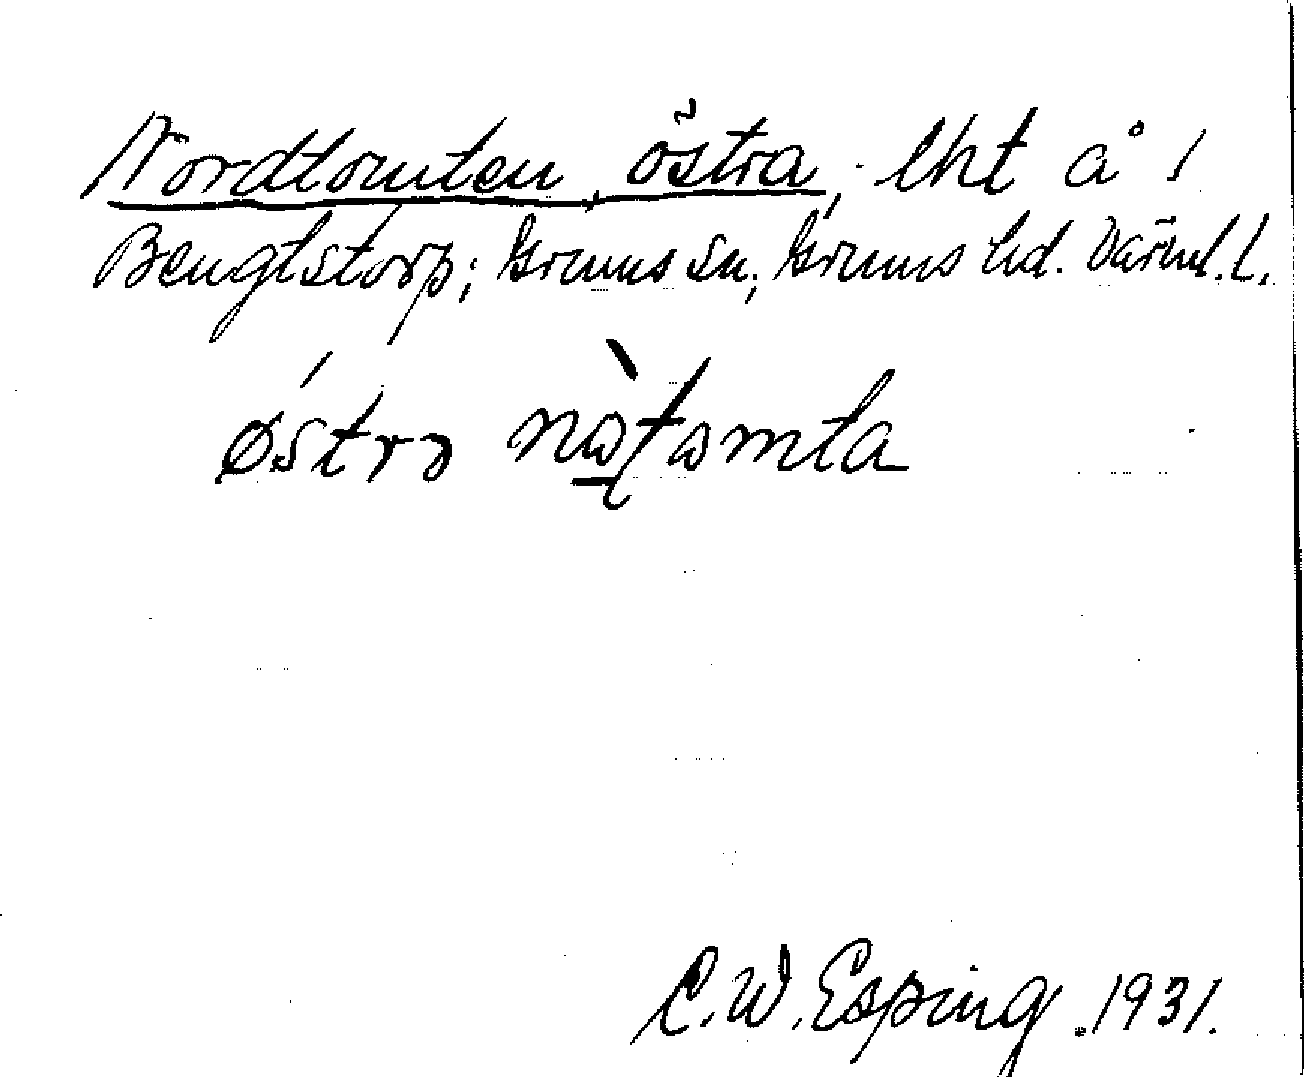 Nordtomten, östra, lht å 1
Bengtstorp; Grums sn; Grums hd. Värml. l.
østrə nə̀təmta
C. W. Esping. 1931.